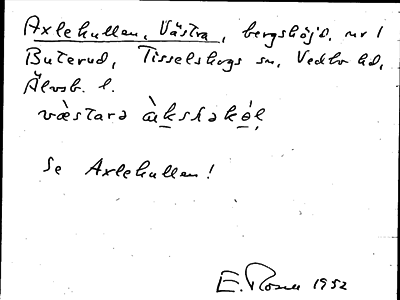 Axlekullen, Västra, bergshöjd, nr 1
Buterud, Tisselskogs sn, Vedbo hd,
Älvsb. l.
væ̀starə àksləkól̥
Se Axlekullen!
E. Rosen 1952